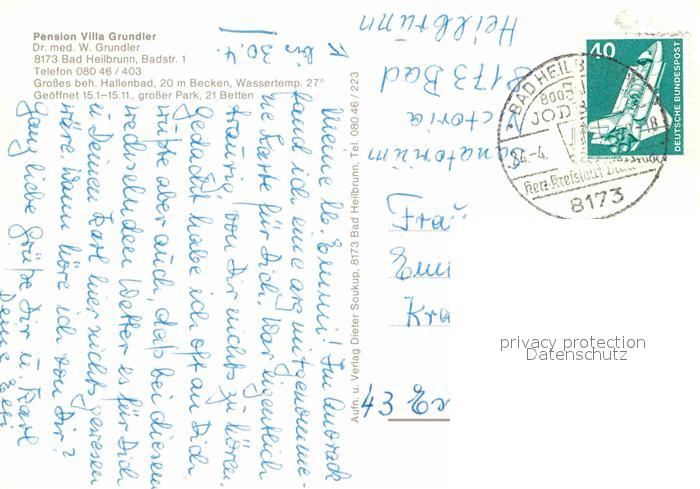 Pension Villa Grundler
Dr. med. W. Grundler
8173 Bad Heilbrunn, Badstr. 1
Telefon 080 46 / 403
Großes beh. Hallenbad, 20 m Becken, Wassertemp. 27°
Geöffnet 15.1–15.11., großer Park, 21 Betten
bis
30.4.
Meine lb Emmi! Im Anorack
fand ich eine arg mitgenomme-
ne Karte für Dich. War eigentlich
traurig, von Dir nichts zu hören,
gedacht habe ich oft an Dich
wußte aber auch, daß bei diesem
wechselnden Wetter es für Dich
u Deinen Karl hier nichts gewesen
wäre. Wann höre ich von Dir?
Ganz liebe Grüße Dir u. Karl
Deine
Aufn. u. Verlag Dieter Soukup, 8173 Bad Heilbrunn, Tel. 080 46 / 223
Sanatorium
8173 Bad
Heilbrunn
40
DEUTSCHE BUNDESPOST
BAD HEILB
800
JOD
-4.
Herz-Kreislauf
8173
Frau
Emm
Kra
43 Es
privacy protection
Datenschutz